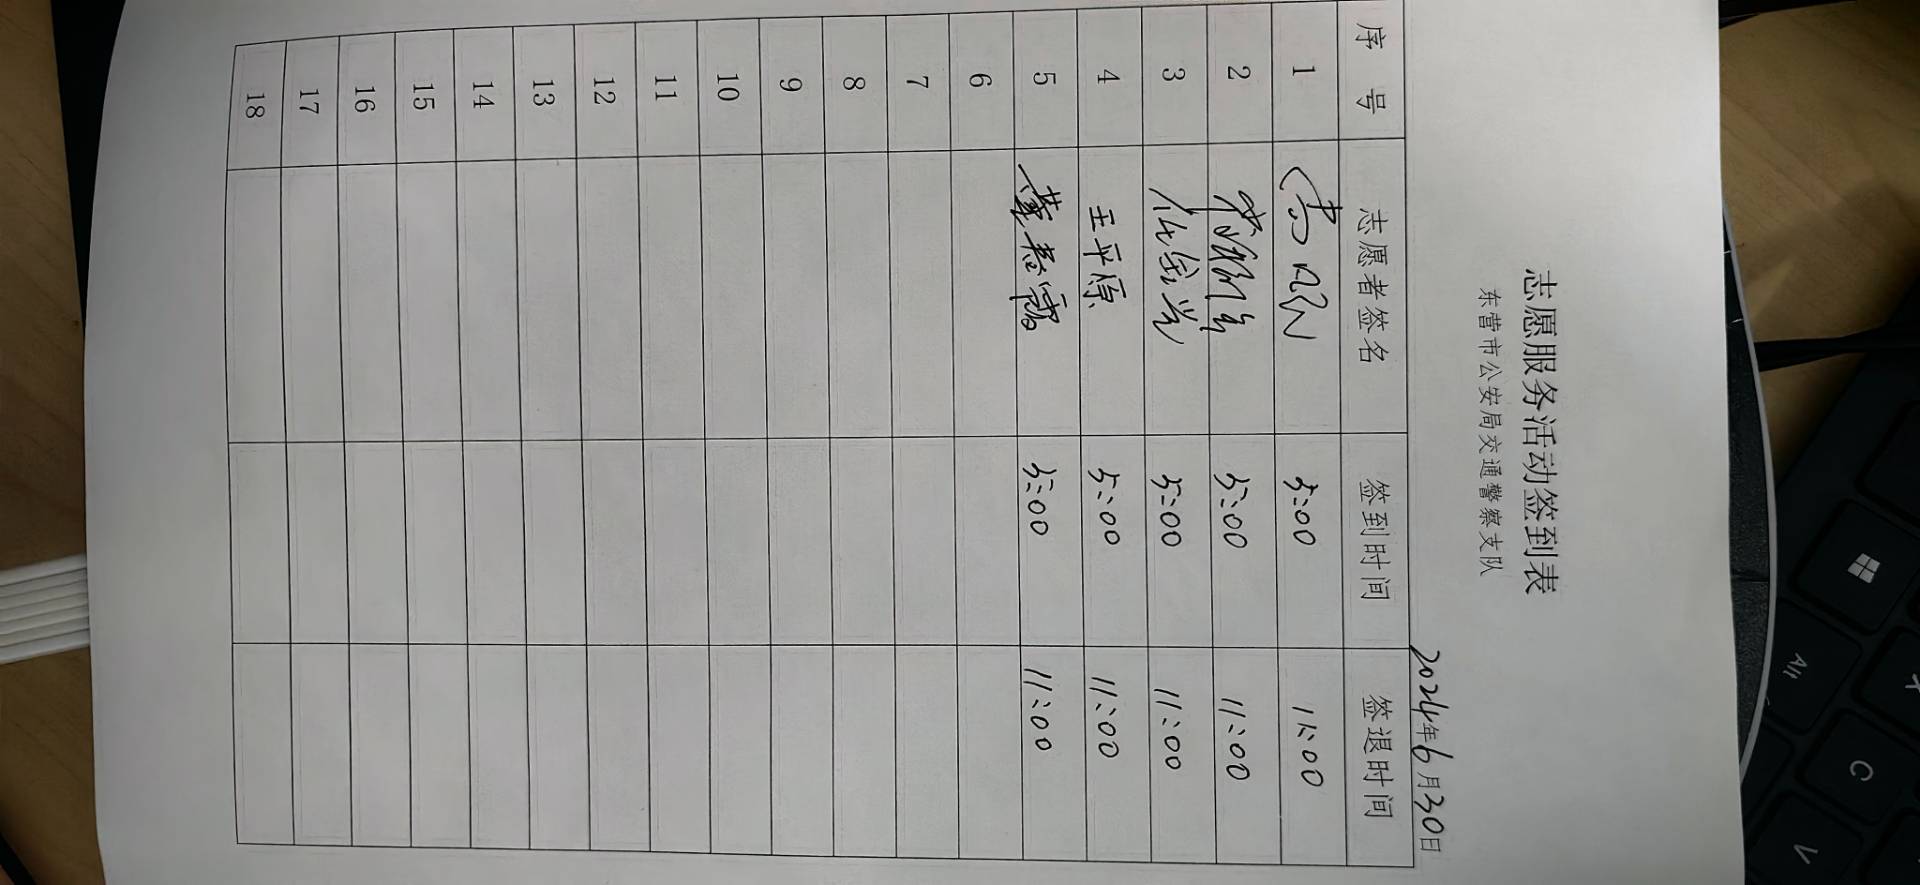 志愿服务活动签到表
东营市公安局交通警察支队
2024年6月30日
序号 志愿者签名 签到时间 签退时间
1 5:00 11:00
2 5:00 11:00
3 5:00 11:00
4 王平原 5:00 11:00
5 5:00 11:00
6
7
8
9
10
11
12
13
14
15
16
17
18
Alt
C
V